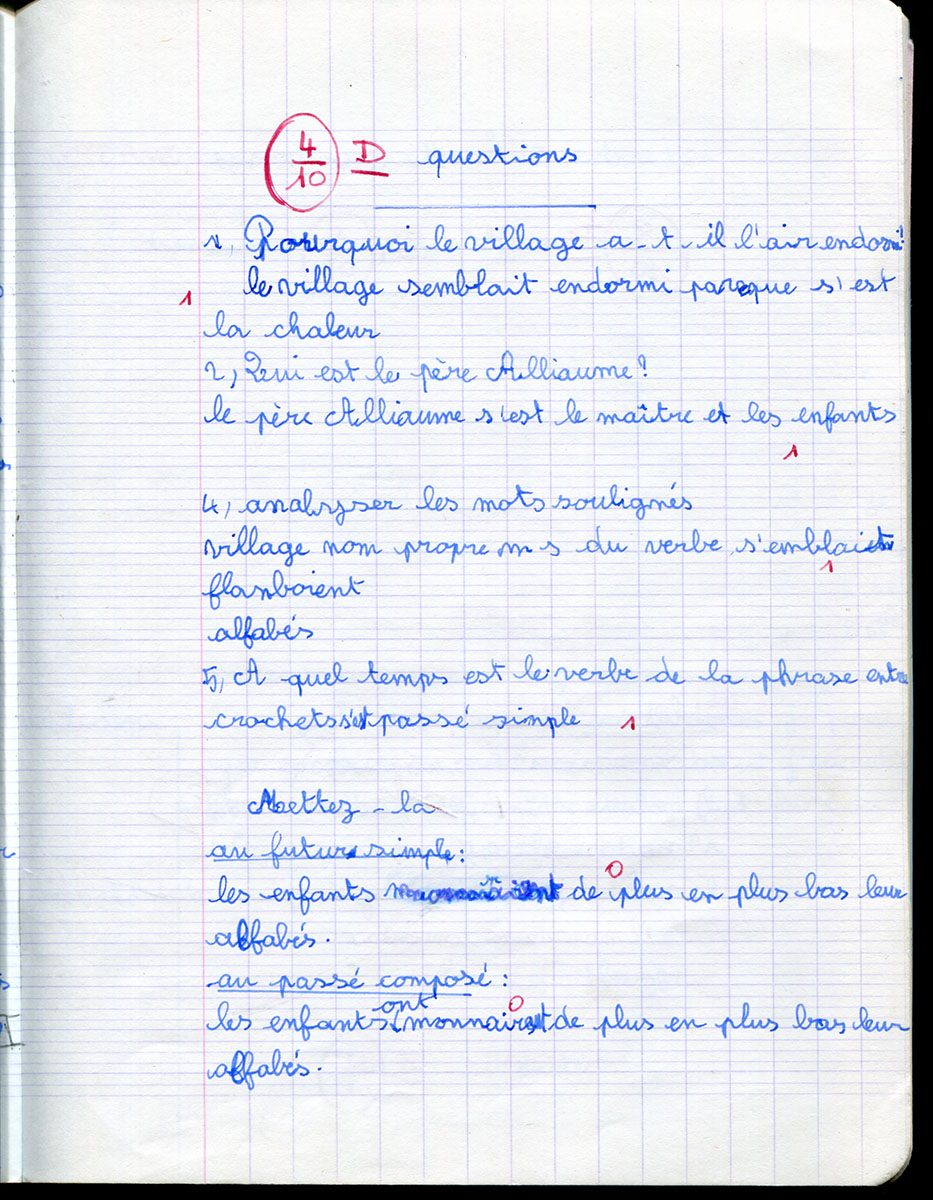 4/10 D questions
1, Pourquoi le village a-t-il l'air endormi?
1 le village semblait endormi pareque s'est
la chaleur
2, Qui est le père Alliaume?
le père Alliaume s'est le maître et les enfants
1
4, analyser les mots soulignés
village nom propre m s du verbe s'emblait
1
flanboient
alfabés
5, A quel temps est le verbe de la phrase entre
crochets s'est passé simple 1
Mettez-la
au futur simple:
0
les enfants de plus en plus bas leur
alfabés.
au passé composé:
ont 0
les enfants monnairent de plus en plus bas leur
alfabés.